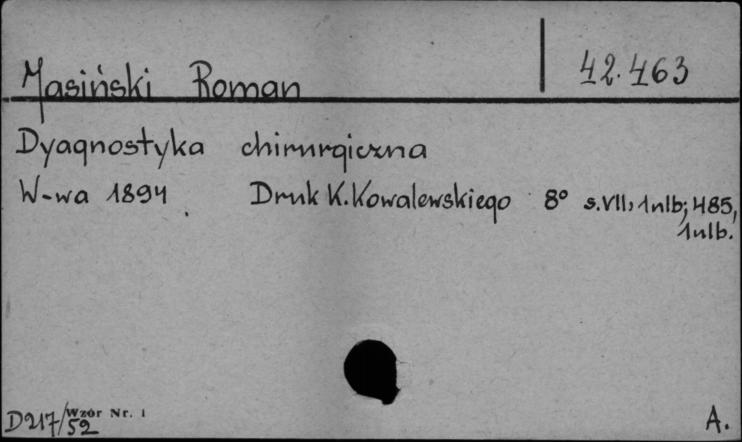 Jasiński Roman
42.463
Dyagnostyka chirurgiczna
W-wa 1894. Druk K. Kowalewskiego 8° s.VII, 1nlb; 485,
1nlb.
D217/52
Wzór Nr. 1
A.